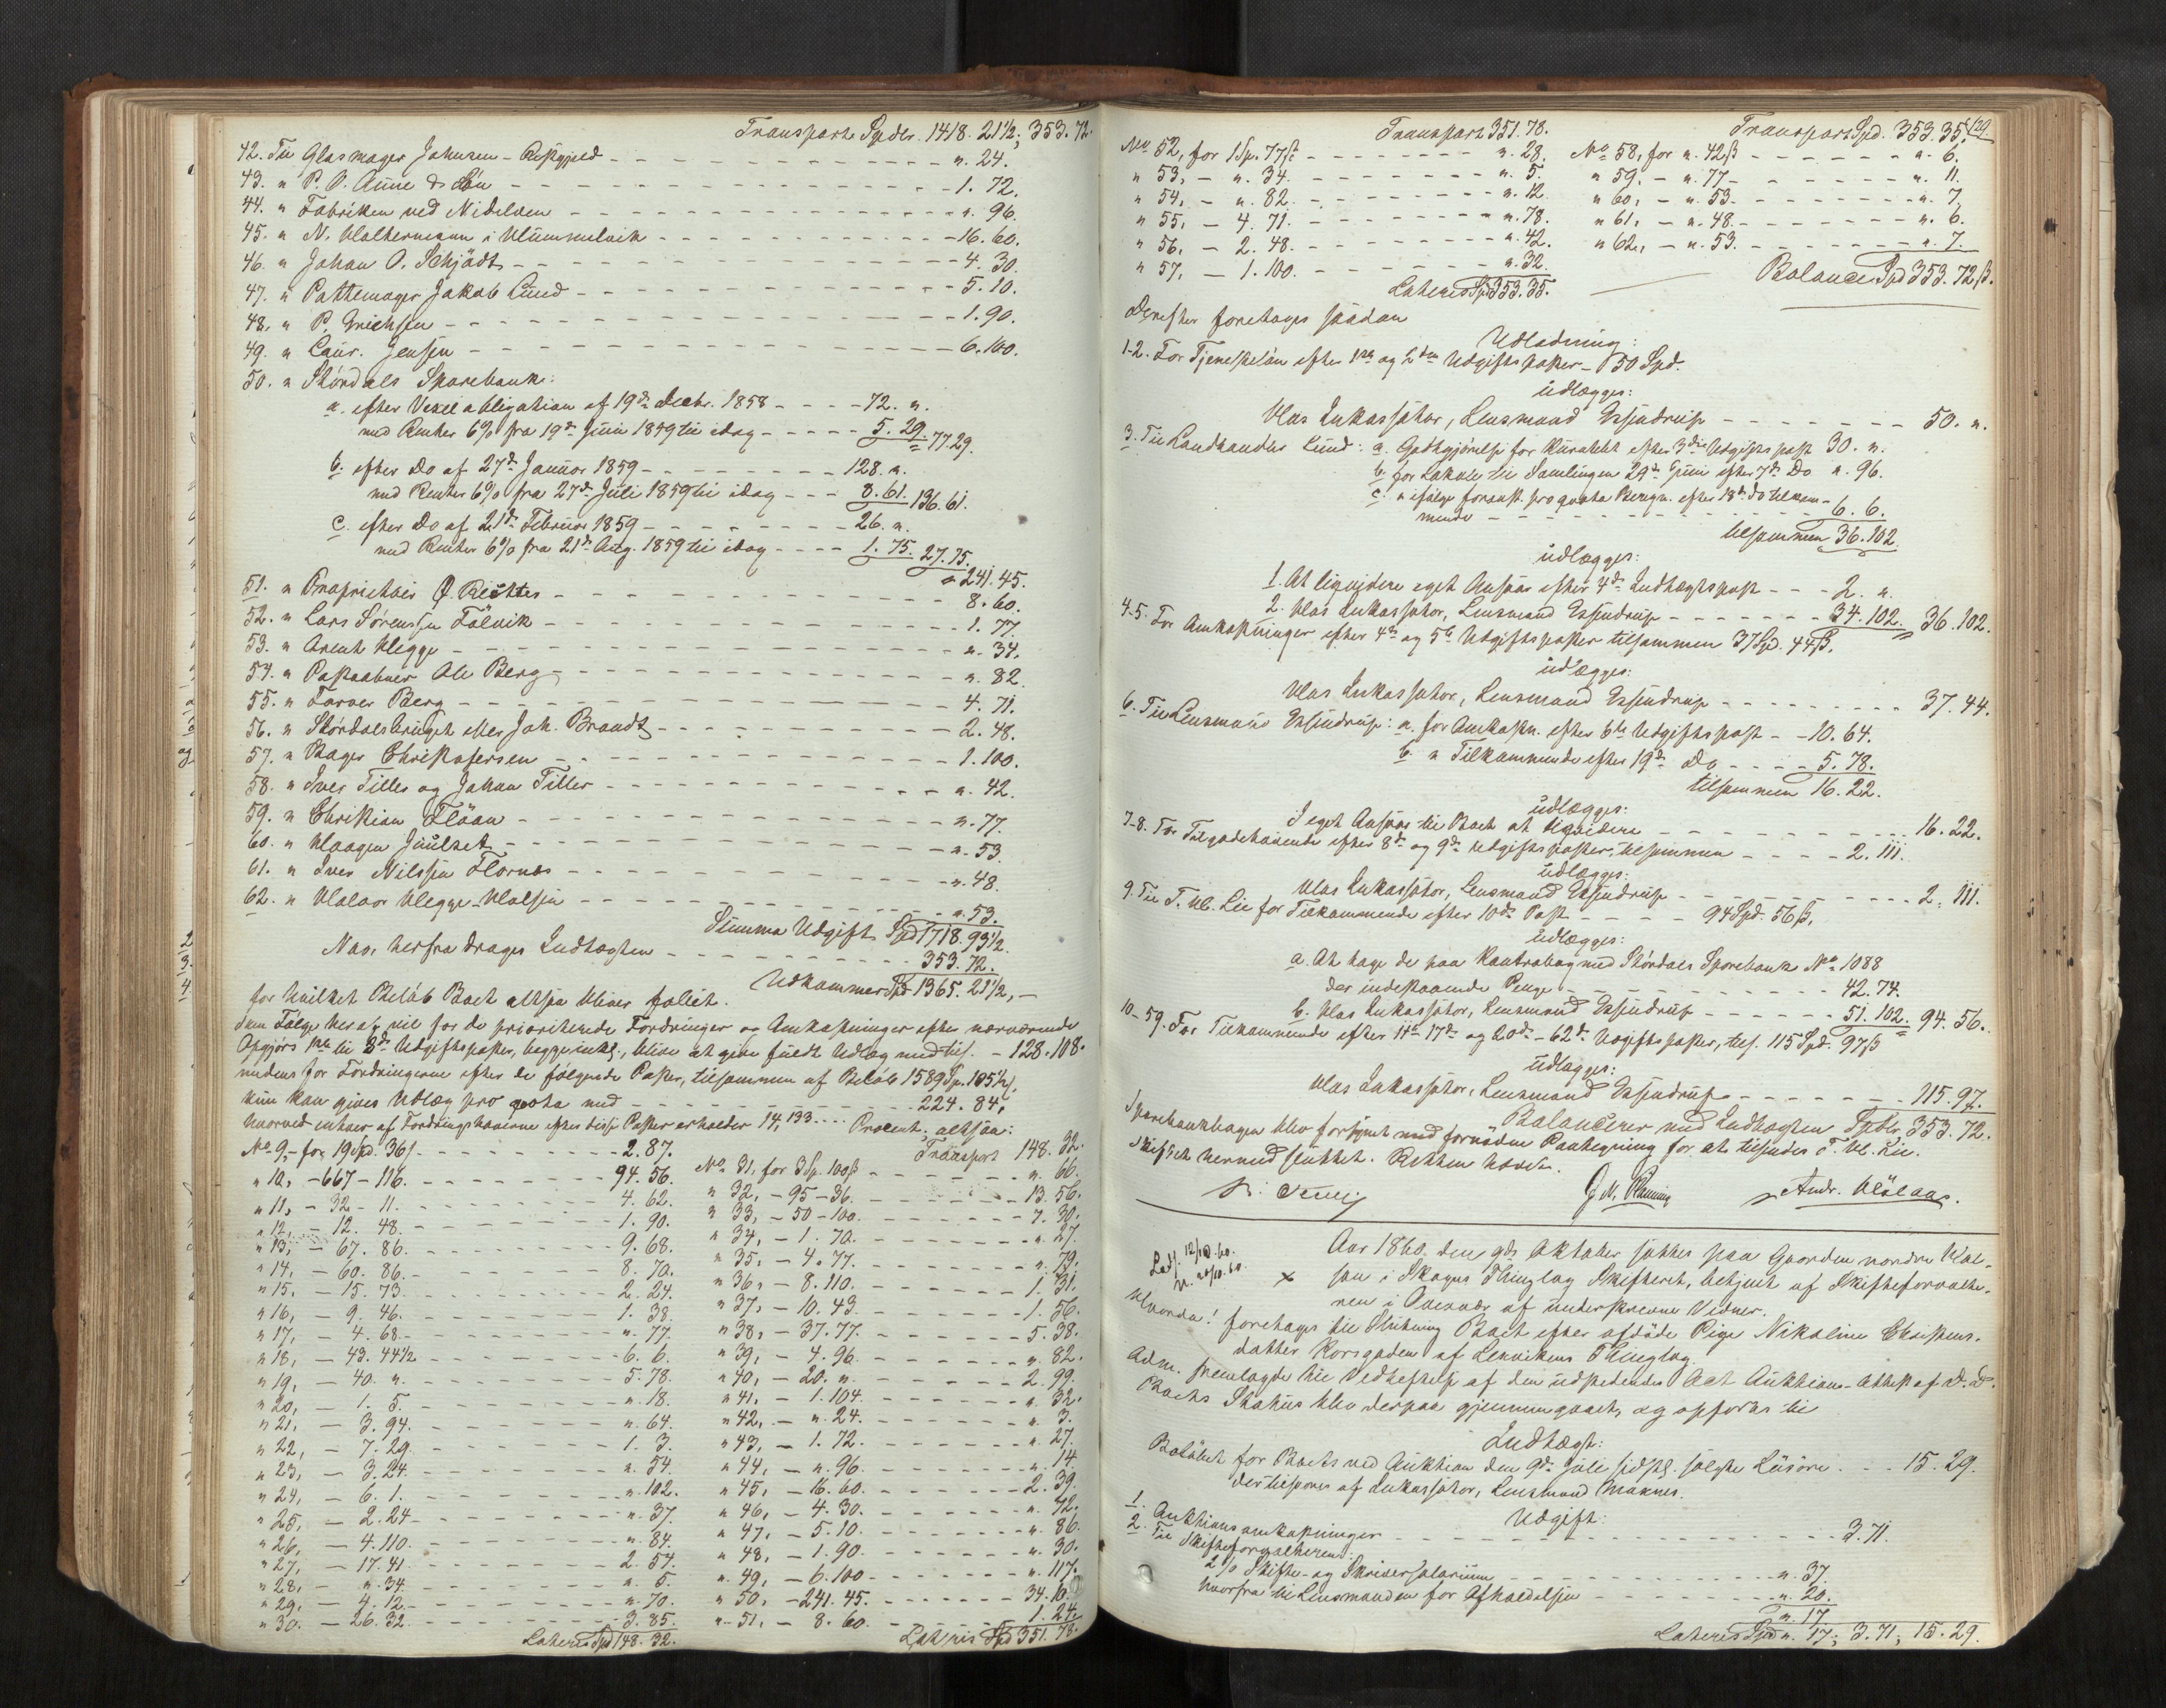 Transport Spdlr. 1418. 21½; 353. 72.
42. Til Glasmager Johnsen - Restgjeld - - - " 24.
43. " P. O. Aune & Søn - - - 1. 72.
44. " Fabriken ved Nidelven - - - " 96.
45. " N. Walthermann i Hummelvik - - - 16. 60.
46. " Johan O. Schjödt - - - 4. 30.
47. " Pottemager Jakob Lund - - - 5. 10.
48. " P. Erichsen - - - 1. 90.
49. " Laur. Jensen - - - 6. 100.
50. " Stördals Sparebank:
a. efter Vexelobligation af 19de Decbr. 1858 - - - 72. "
med Renter 6% fra 19de Juni 1859 til idag - - - 5. 29. 77. 29.
b. efter Do af 27de Januar 1859 - - - 128. "
med Renter 6% fra 27de Juli 1859 til idag - - - 8. 61. 136. 61.
c. efter Do af 21de Februar 1859 - - - 26. "
med Renter 6% fra 21de Aug. 1859 til idag - - - 1. 75. 27. 75.
241. 45.
51. " Proprietair Richter - - - 8. 60.
52. " Lars Sørenssen Fölvik - - - 1. 77.
53. " Arent Klegge - - - " 34.
54. " Postaabner Ole Berg - - - " 82.
55. " Farver Berg - - - 4. 71.
56. " Stördalsbruget eller Joh. Brandt - - - 2. 48.
57. " Bager Christofersen - - - 1. 100.
58. " Iver Tiller og Johan Tiller - - - " 42.
59. " Christian Flöan - - - " 77.
60. " Haagen Juulset - - - " 53.
61. " Iver Nilssen Flornes - - - " 48.
62. " Halvor Klegge-Halsen - - - " 53.
Summa Udgift Spd 1718. 93½.
Naar herfra drages Indtægten - - - 353. 72.
Udkommer Spd 1365. 21½,
for hvilket Belöb Boet altsaa bliver fallit.
Som Fölge heraf vil for de prioriterede Fordringer og Omkostninger efter nærværende
Opgjörs 1ste til 8de Udgiftsposter, begge inkl., blive at give fuldt Udlæg med tils. - 128. 108.
medens for Fordringerne efter de følgende Poster, tilsammen af Beløb 1589 Sp. 105½ s.
kun kan gives Udlæg pro qvota med - - - 224. 84,
hvorved enhver af Fordringshaverne efter disse Poster erholder 14,133.... Procent, altsaa:
No 9, for 19 Spd. 36 s. - - - 2. 87.
" 10, - 667 - 116. - - - 94. 56.
" 11, - 32 - 11. - - - 4. 62.
" 12, - 12. 48. - - - 1. 90.
" 13, - 67. 86. - - - 9. 68.
" 14, - 60. 86. - - - 8. 70.
" 15, - 15. 73. - - - 2. 24.
" 16, - 9. 46. - - - 1. 38.
" 17, - 4. 68. - - - " 77.
" 18, - 43. 44½ - - - 6. 6.
" 19, - 40. " - - - 5. 78.
" 20, - 1. 5. - - - " 18.
" 21, - 3. 94. - - - " 64.
" 22, - 7. 29. - - - 1. 3.
" 23, - 3. 24. - - - " 54.
" 24, - 6. 1. - - - " 102.
" 25, - 2. 24. - - - " 37.
" 26, - 4. 110. - - - " 84.
" 27, - 17. 41. - - - 2. 54.
" 28, - " 34. - - - " 5.
" 29, - 4. 12. - - - " 70.
" 30. - 26. 32. - - - 3. 85.
Lateris Spd 148. 32.
Transport 148. 32.
No 31, for 3 Sp. 100 ß - - - " 66.
" 32, - 95 - 36. - - - 13. 56.
" 33, - 50 - 100. - - - 7. 30.
" 34, - 1. 70. - - - " 27.
" 35, - 4. 77. - - - " 79.
" 36, - 8. 110. - - - 1. 31.
" 37, - 10. 43. - - - 1. 56.
" 38, - 37. 77. - - - 5. 38.
" 39, - 4. 96. - - - " 82.
" 40, - 20. " - - - 2. 99.
" 41, - 1. 104. - - - " 32.
" 42, - " 24. - - - " 3.
" 43, - 1. 72. - - - " 27.
" 44, - " 96. - - - " 14.
" 45, - 16. 60. - - - 2. 39.
" 46, - 4. 30. - - - " 72.
" 47, - 5. 10. - - - " 86.
" 48, - 1. 90. - - - " 30.
" 49, - 6. 100 - - - " 117.
" 50, - 241. 45. - - - 34. 10
" 51, - 8. 60. - - - 1. 24.
Lateris Spd 351. 78.
Transport 351. 78.
No 52, for 1 Sp. 77 ß - - - " 28.
" 53, - " 34. - - - " 5.
" 54, - " 82. - - - " 12.
" 55, - 4. 71. - - - " 78.
" 56, - 2. 48. - - - " 42.
" 57, - 1. 100. - - - " 32.
Lateris Spd 353. 35.
Transport Spd. 353. 35. 129.
No 58, for " 42 ß - - - " 6.
" 59, - " 77 - - - " 11.
" 60, - " 53. - - - " 7.
" 61, - " 48. - - - " 6.
" 62, - " 53. - - - " 7.
Balance Spd 353. 72 ß.
Derefter foretoges saadan
Udlodning:
1-2. For Tjenesteløn efter 1ste og 2den Udgiftsposter - 50 Spd.
udlægges:
Hos Inkassator, Lensmand Ensjendrup - - - 50. "
3. Til Landhandler Lund: a. Godtgjörelse for Kuratelet efter 3die Udgiftspost 30. "
b. for Lokale til Samlingen 29de Juni efter 7de Do " 96.
c. " ifølge foranst. pro qvota Beregn. efter 18de Do tilkom-
mende - - - 6. 6.
tilsammen 36. 102.
udlægges:
1. At liqvidere eget Ansvar efter 4de Indtægtspost - - - 2. "
2. Hos Inkassator, Lensmand Ensjendrup - - - 34. 102. 36. 102.
4-5. For Omkostninger efter 4de og 5te Udgiftsposter tilsammen 37 Spd. 44 ß.
udlægges:
Hos Inkassator, Lensmand Ensjendrup - - - 37. 44.
6. Til Lensmand Ensjendrup: a. for Omkostn. efter 6te Udgiftspost - - 10. 64.
b. " Tilkommende efter 19de Do - - - 5. 78.
tilsammen 16. 22.
udlægges:
I eget Ansvar til Boet at liqvidere - - - 16. 22.
7-8. For Tilgodehavende efter 8de og 9de Udgiftsposter, tilsammen - - - 2. 111.
udlægges:
Hos Inkassator, Lensmand Ensjendrup - - - 2. 111.
9. Til T. H. Lie for Tilkommende efter 10de Post - - - 94 Spd. 56 ß,
udlægges:
a. At tage de paa Kontrabog med Stördals Sparebank No 1088
der indestaaende Penge - - - 42. 74.
b. Hos Inkassator, Lensmand Ensjendrup - - - 51. 102. 94. 56.
10-59. For Tilkommende efter 11te-17de og 20de-62de Udgiftsposter, tils. 115 Spd. 97 ß
udlægges:
Hos Inkassator, Lensmand Ensjendrup - - - 115. 97.
Balancerer med Indtægten Spdlr. 353. 72.
Sparebankbogen blev forsynet med fornöden Paategning for at tilsendes T. H. Lie.
Skiftet hermed sluttet. Retten hævet.
Andr. Hölaas.
Aar 1860 den 9de Oktober sattes paa Gaarden nordre Hal-
sen i Skogns Thinglag Skifteret, betjent af Skifteforvalte-
ren i Overvær af underskrevne Vidner.
Hvorda! foretoges til Slutning Boet efter afdöde Pige Nikoline Christens-
datter Korsgaden af Leksvikens Thinglag.
Adm. fremlagde til Vedheftelse af den udstedendes Act Auktions-Attest af D. D.
Boets Status blev derpaa gjennemgaaet, og opfores til
Indtægt:
Belöbet for Boets ved Auktion den 9de Juli sidstl. solgte Lösöre - - 15. 29.
der tilsvares af Inkassator, Lensmand Maknes.
Udgift:
1. Auktionsomkostninger - - - 3. 71.
2. Til Skifteforvalteren:
2% Skifte- og Skriversalarium - - - " 37.
hvorfra til Lensmanden for Afholdelsen - - - " 20.
" 17
Lateris Spd " 17; 3. 71; 15. 29.